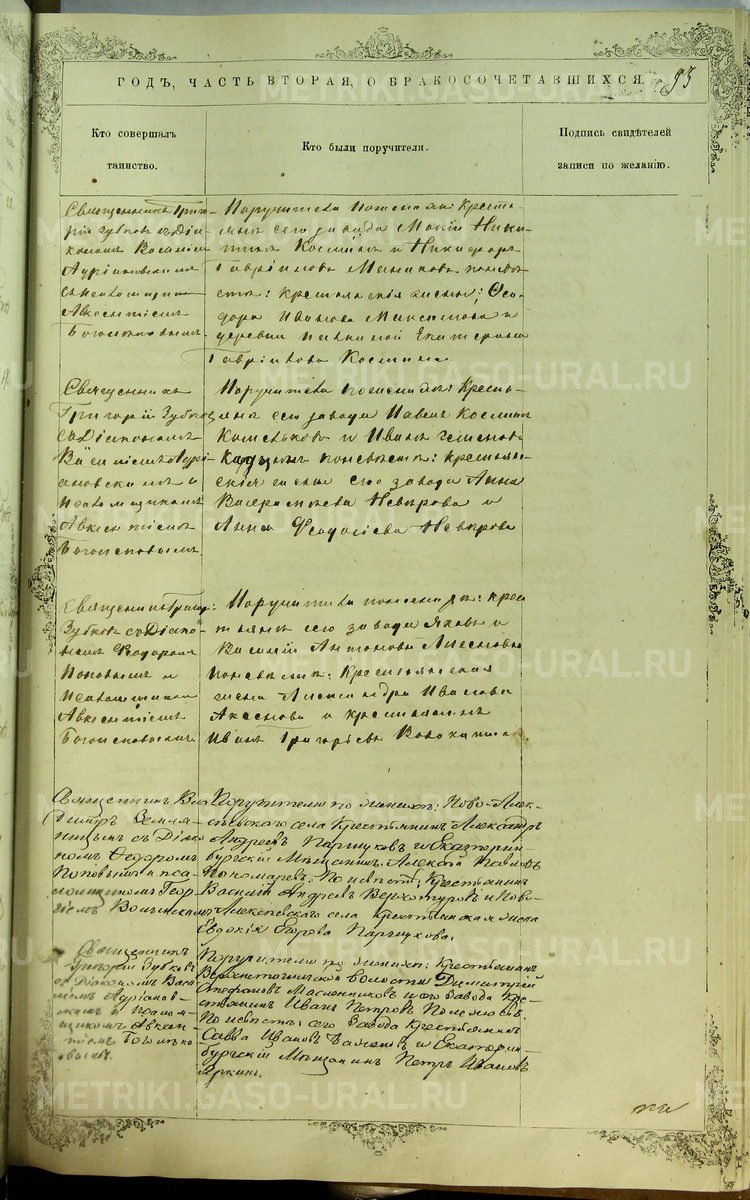 ГОДЪ, ЧАСТЬ ВТОРАЯ, О БРАКОСОЧЕТАВШИХСЯ. 93
Кто совершалъ
таинство.
Кто были поручители.
Подпись свидѣтелей
записи по желанію.
Священникъ Григо-
рій Зубковъ съ Діа-
кономъ Василіем
Адріановскимъ
и псаломщикомъ
Авксентіемъ
Богословскимъ
Поручители по женихѣ: кресть-
яне сего завода Мокій Ники-
тинъ Косминъ и Никифоръ
Гавріиловъ по невѣ-
стѣ: крестьянскія жены: Ѳео-
дора Иванова Максимова и
деревни Екатерина
Гавріилова Космина
Священникъ
Григорій Зубковъ
съ Діакономъ
Василіемъ Адрі-
ановскимъ и
Псаломщикомъ
Авксентіемъ
Богословскимъ
Поручители по женихѣ: кресть-
яне сего завода Павелъ Косминъ
и Иванъ Семеновъ
по невѣстѣ: крестьян-
скія жены сего завода Анна
Невѣрова и
Анна Ѳеодосіева Невѣрова
Священникъ Григор:
Зубковъ съ Діако-
номъ Ѳеодоромъ
Поповымъ и
Псаломщикомъ
Авксентіемъ
Богословскимъ
Поручители по женихѣ: крес
тьяне сего завода Яковъ и
Василій Антоновы Аксеновы
по невѣстѣ: Крестьянская
жена Александра Иванова
Аксенова и крестьянинъ
Иванъ Григорьевъ
Священникъ Вла
димiръ Земля-
ницынъ съ Діако
номъ Ѳеодоромъ
Поповымъ и пса-
ломщикомъ Геор
гіемъ
Поручители по женихѣ: Ново-Алек-
сѣевскаго села Крестьянинъ Александръ
Андреевъ Паршуковъ и Екатерин-
бургскій Мѣщанинъ Алексѣй Павловъ
Пономаревъ. По невѣстѣ: Крестьянинъ
Василій Андреевъ Верхотуровъ и Ново-
Алексѣевскаго села Крестьянская жена
Евдокія Егорова Паршукова.
Священникъ
Григорій Зубковъ
съ Діакономъ Васи
ліемъ Адріанов-
скимъ и Псалом-
щикомъ Авксен-
тіемъ Богослов-
скимъ.
Поручители по женихѣ: Крестьянинъ
волости Димитрій
Стефановъ Масленниковъ и сего Завода Кре-
стьянинъ Иванъ Петровъ
По невѣстѣ: сего Завода Крестьянинъ
Савва Ивановъ и Екатерин-
бургскій Мѣщанинъ Петръ Ивановъ
Яркинъ.
METRIKI.GASO-URAL.RU